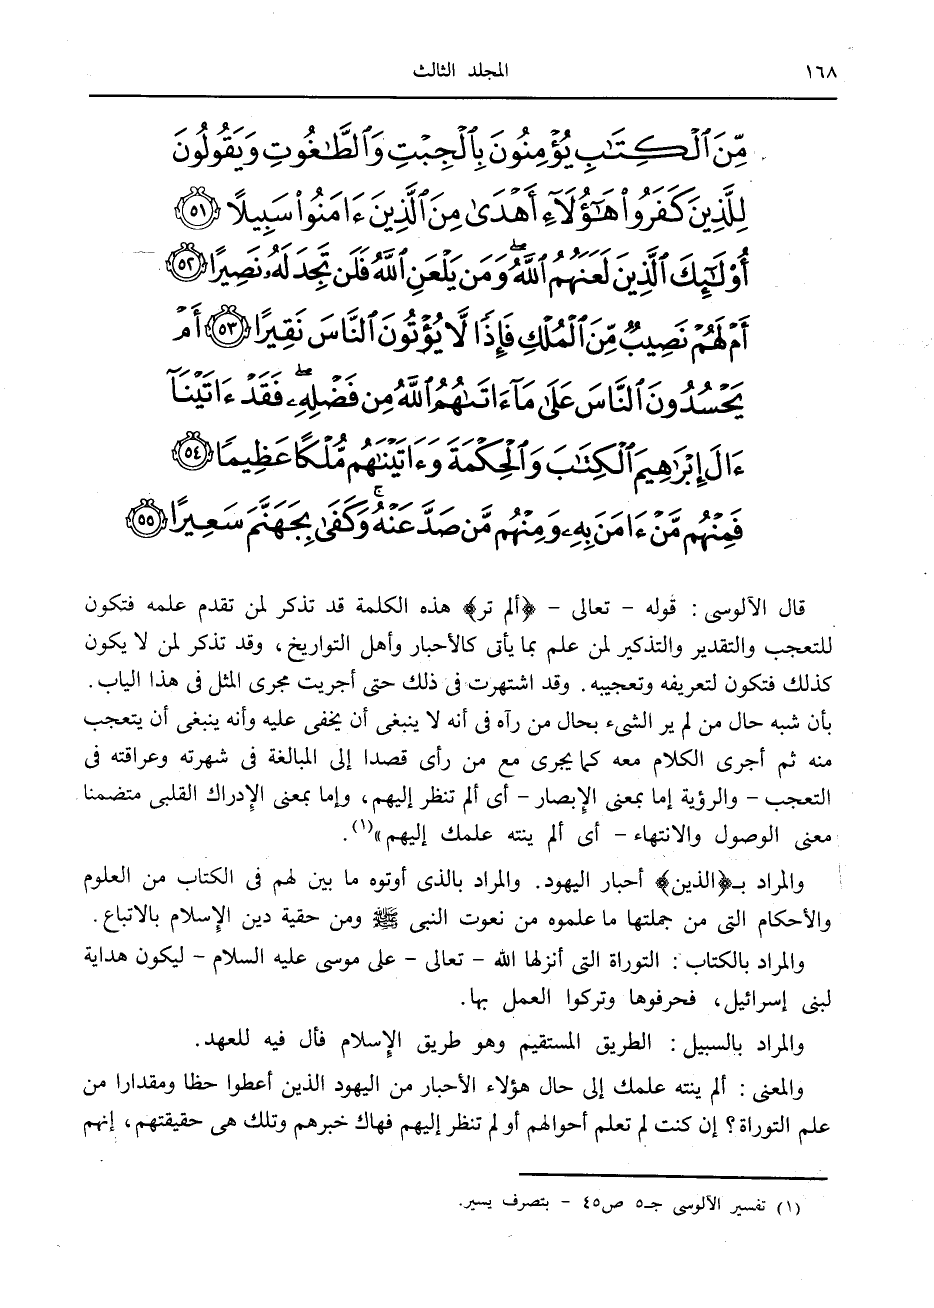 ١٦٨ المجلد الثالث
مِّنَ ٱلْكِتَـٰبِ يُؤْمِنُونَ بِٱلْجِبْتِ وَٱلطَّـٰغُوتِ وَيَقُولُونَ
لِلَّذِينَ كَفَرُوا۟ هَـٰٓؤُلَآءِ أَهْدَىٰ مِنَ ٱلَّذِينَ ءَامَنُوا۟ سَبِيلًا ٥١
أُو۟لَـٰٓئِكَ ٱلَّذِينَ لَعَنَهُمُ ٱللَّهُ ۖ وَمَن يَلْعَنِ ٱللَّهُ فَلَن تَجِدَ لَهُۥ نَصِيرًا ٥٢
أَمْ لَهُمْ نَصِيبٌ مِّنَ ٱلْمُلْكِ فَإِذًا لَّا يُؤْتُونَ ٱلنَّاسَ نَقِيرًا ٥٣ أَمْ
يَحْسُدُونَ ٱلنَّاسَ عَلَىٰ مَآ ءَاتَىٰهُمُ ٱللَّهُ مِن فَضْلِهِۦ ۖ فَقَدْ ءَاتَيْنَآ
ءَالَ إِبْرَٰهِيمَ ٱلْكِتَـٰبَ وَٱلْحِكْمَةَ وَءَاتَيْنَـٰهُم مُّلْكًا عَظِيمًا ٥٤
فَمِنْهُم مَّنْ ءَامَنَ بِهِۦ وَمِنْهُم مَّن صَدَّ عَنْهُ ۚ وَكَفَىٰ بِجَهَنَّمَ سَعِيرًا ٥٥
قال الآلوسى : قوله - تعالى - ﴿ألم تر﴾ هذه الكلمة قد تذكر لمن تقدم علمه فتكون
للتعجب والتقدير والتذكير لمن علم بما يأتى كالأحبار وأهل التواريخ ، وقد تذكر لمن لا يكون
كذلك فتكون لتعريفه وتعجيبه . وقد اشتهرت فى ذلك حتى أجريت مجرى المثل فى هذا الباب .
بأن شبه حال من لم ير الشىء بحال من رآه فى أنه لا ينبغى أن يخفى عليه وأنه ينبغى أن يتعجب
منه ثم أجرى الكلام معه كما يجرى مع من رأى قصدا إلى المبالغة فى شهرته وعراقته فى
التعجب - والرؤية إما بمعنى الإبصار - أى ألم تنظر إليهم ، وإما بمعنى الإدراك القلبى متضمنا
معنى الوصول والانتهاء - أى ألم ينته علمك إليهم »(١).
والمراد بـ﴿الذين﴾ أحبار اليهود . والمراد بالذى أوتوه ما بين لهم فى الكتاب من العلوم
والأحكام التى من جملتها ما علموه من نعوت النبى ﷺ ومن حقية دين الإسلام بالاتباع .
والمراد بالكتاب : التوراة التى أنزلها الله - تعالى - على موسى عليه السلام - ليكون هداية
لبنى إسرائيل ، فحرفوها وتركوا العمل بها .
والمراد بالسبيل : الطريق المستقيم وهو طريق الإسلام فأل فيه للعهد .
والمعنى : ألم ينته علمك إلى حال هؤلاء الأحبار من اليهود الذين أعطوا حظا ومقدارا من
علم التوراة ؟ إن كنت لم تعلم أحوالهم أو لم تنظر إليهم فهاك خبرهم وتلك هى حقيقتهم ، إنهم
(١) تفسير الآلوسى جـ٥ ص٤٥ - بتصرف يسير .